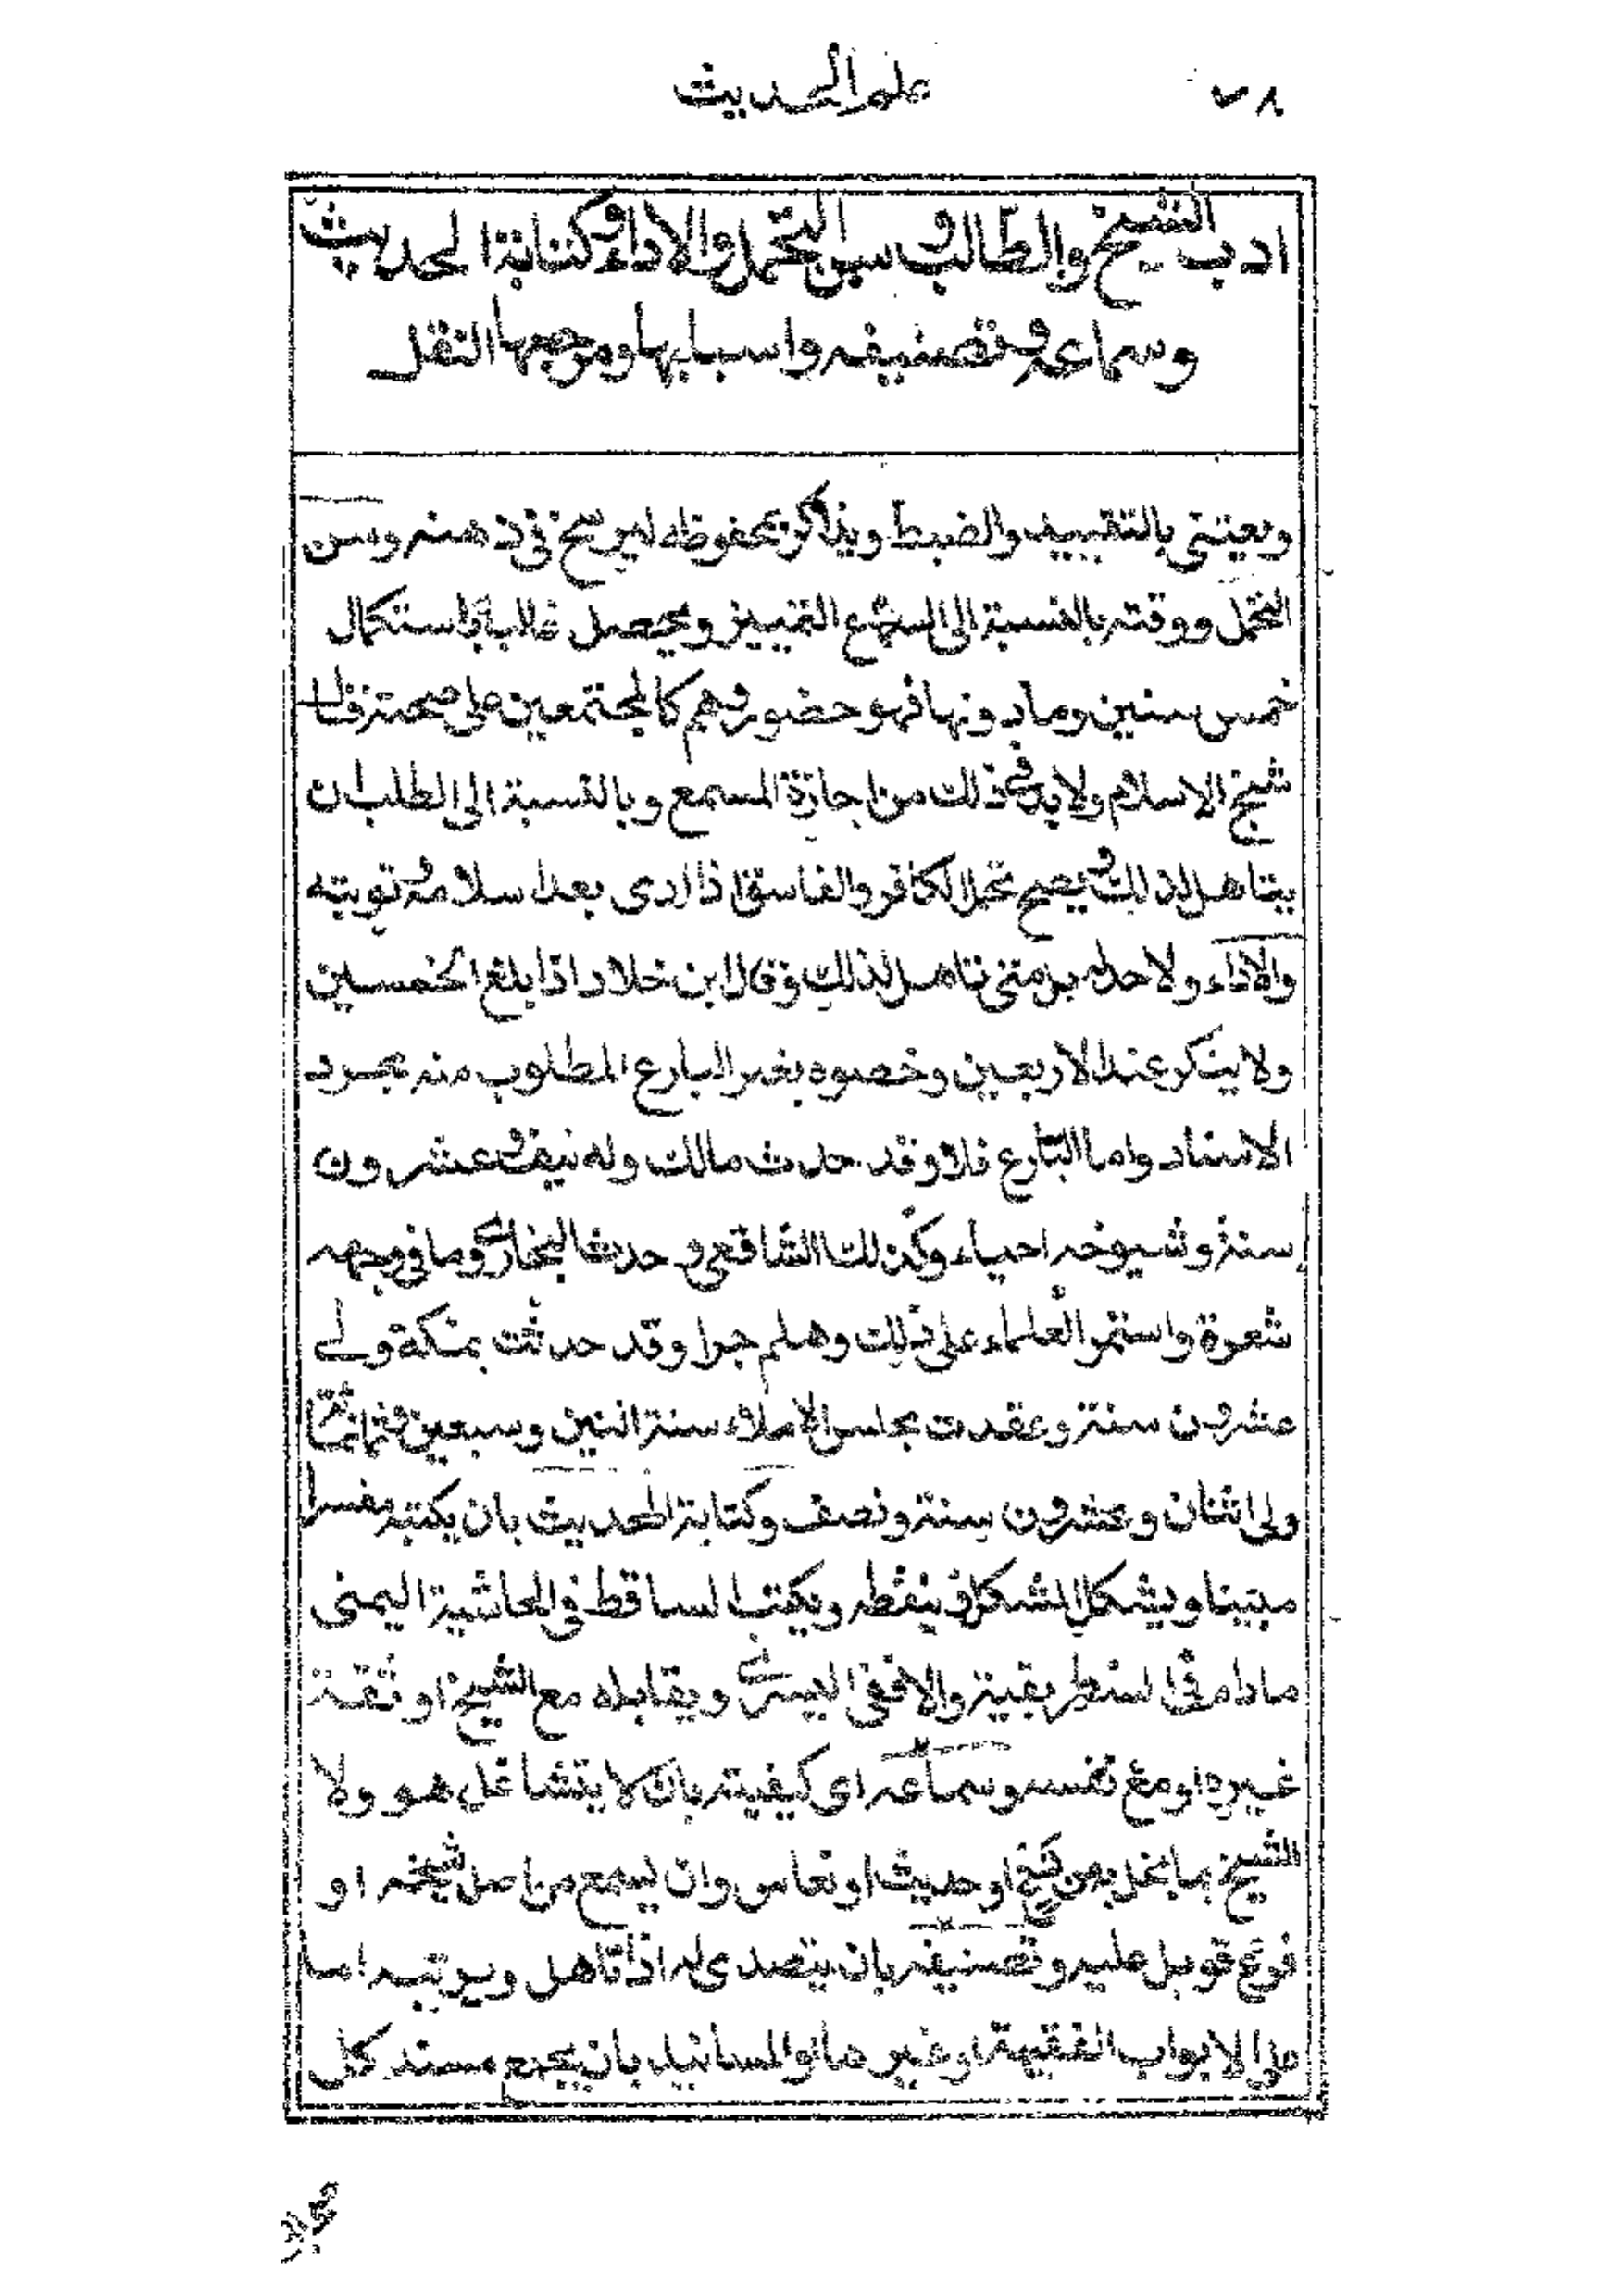 ٧٨ علم الحديث
ادب الشيخ والطالب وسن التحمل والاداء وكتابة الحديث
وسماعه وتصنيفه واسبابها ومرجعها النقل
ويعتنى بالتقييد والضبط ويذاكر بمحفوظه ليرسخ فى ذهنه وسن
التحمل ووقته بالنسبة الى السماع التمييز ويحصل غالبا باستكمال
خمس سنين وما دونها فهو حضور وهم كالمجتمعين على صحته قال
شيخ الاسلام ولا بد فى ذلك من اجازة المسمع وبالنسبة الى الطلب ان
يتاهل لذلك ويصح تحمل الكافر والفاسق اذا ادى بعد اسلامه وتوبته
والاداء ولا حد له بل متى تاهل لذلك وقال ابن خلاد اذا بلغ الخمسين
ولا ينكر عند الاربعين وخصوه بغير البارع المطلوب منه مجرد
الاسناد واما البارع فلا وقد حدث مالك وله نيف وعشرون
سنة وشيوخه احياء وكذلك الشافعى وحدث البخارى وما فى وجهه
شعرة واستمر العلماء على ذلك وهلم جرا وقد حدثت بمكة ولى
عشرون سنة وعقدت مجلس الاملاء سنة اثنين وسبعين وثمانمائة
ولى اثنان وعشرون سنة ونصف وكتابة الحديث بان يكتبه مفسرا
مبينا ويشكل المشكل وينقطه ويكتب الساقط فى الحاشية اليمنى
مادام فى السطر بقية والا ففى اليسرى ويقابله مع الشيخ او ثقة
غيره او مع نفسه وسماعه اى كيفيته بان لا يتشاغل هو ولا
الشيخ بما يخل به من نسخ او حديث او نعاس وان يسمع من اصل شيخه او
فرع قوبل عليه وتصنيفه بان يتصدى له اذا تاهل ويرتبه اما
على الابواب الفقيهة او غيرها او المسانيد بان يجمع مسند كل